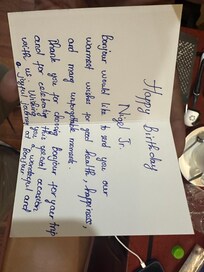 Happy Birthday
Nigel Jr.
Bonjour would like to send you our
warmest wishes for good health, happiness,
and many unforgettable moments.
Thank you for choosing Bonjour for your trip
and for celebrating this special occasion
with us. Wishing you a wonderful and
joyful at Bonjour!